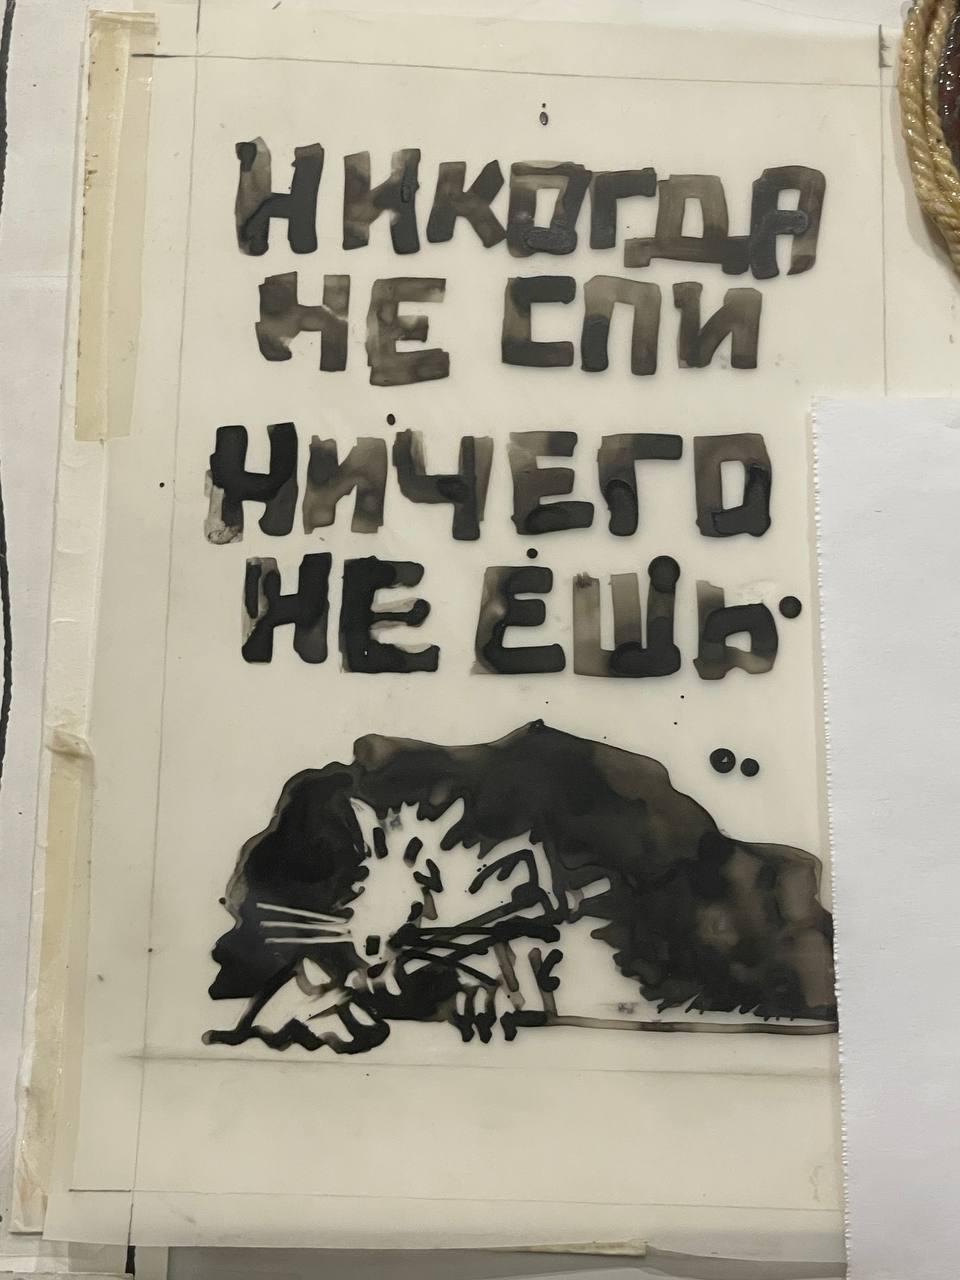 НИКОГДА
НЕ СПИ
НИЧЕГО
НЕ ЕШЬ